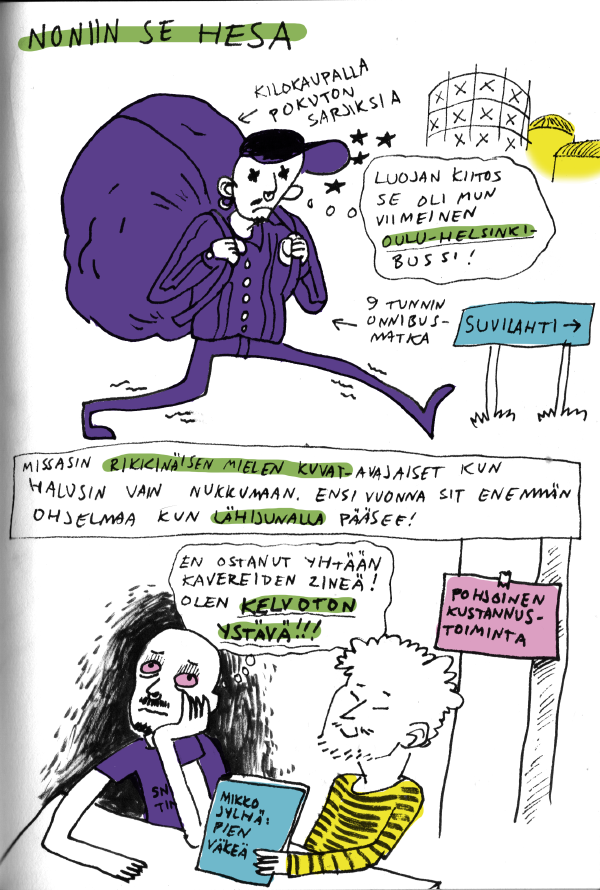 NONIIN SE HESA
KILOKAUPALLA
POKUTON
SARJIKSIA
LUOJAN KIITOS
SE OLI MUN
VIIMEINEN
OULU-HELSINKI-
BUSSI!
9 TUNNIN
ONNIBUS-
MATKA
SUVILAHTI →
MISSASIN RIKKINÄISEN MIELEN KUVAT-AVAJAISET KUN
HALUSIN VAIN NUKKUMAAN. ENSI VUONNA SIT ENEMMÄN
OHJELMAA KUN LÄHIJUNALLA PÄÄSEE!
EN OSTANUT YHTÄÄN
KAVEREIDEN ZINEÄ!
OLEN KELVOTON
YSTÄVÄ!!!
POHJOINEN
KUSTANNUS-
TOIMINTA
MIKKO
JYLHÄ:
PIEN
VÄKEÄ